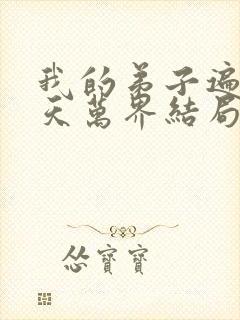 我的弟子遍
天萬界結局
怂寶寶